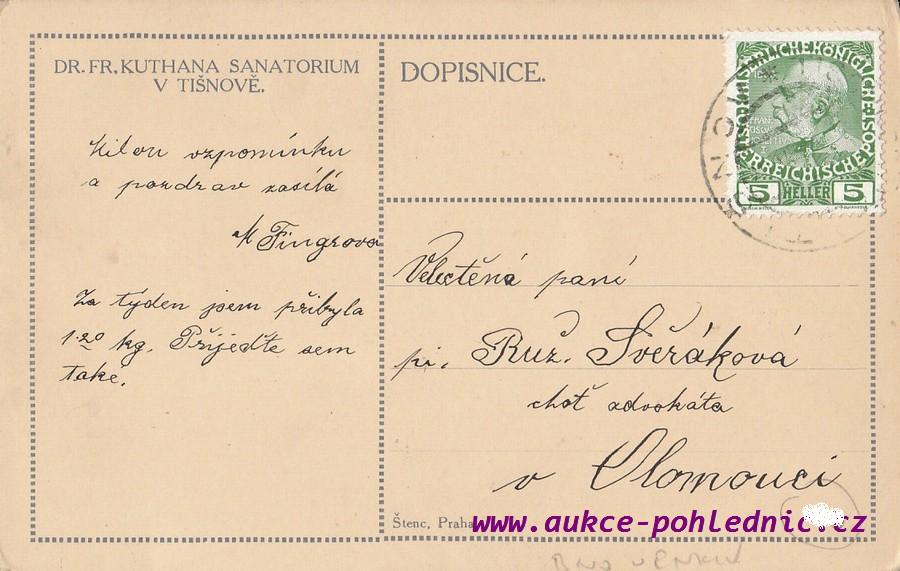 DR. FR. KUTHANA SANATORIUM
V TIŠNOVĚ.
DOPISNICE.
Milou vzpomínku
a pozdrav zasílá
M Fingrova
Za týden jsem přibyla
1·20 kg. Přijeďte sem
také.
Velectěná paní
pí. Růž. Svěráková
choť advokáta
v Olomouci
Štenc, Praha
www.aukce-pohlednic cz
5 HELLER 5